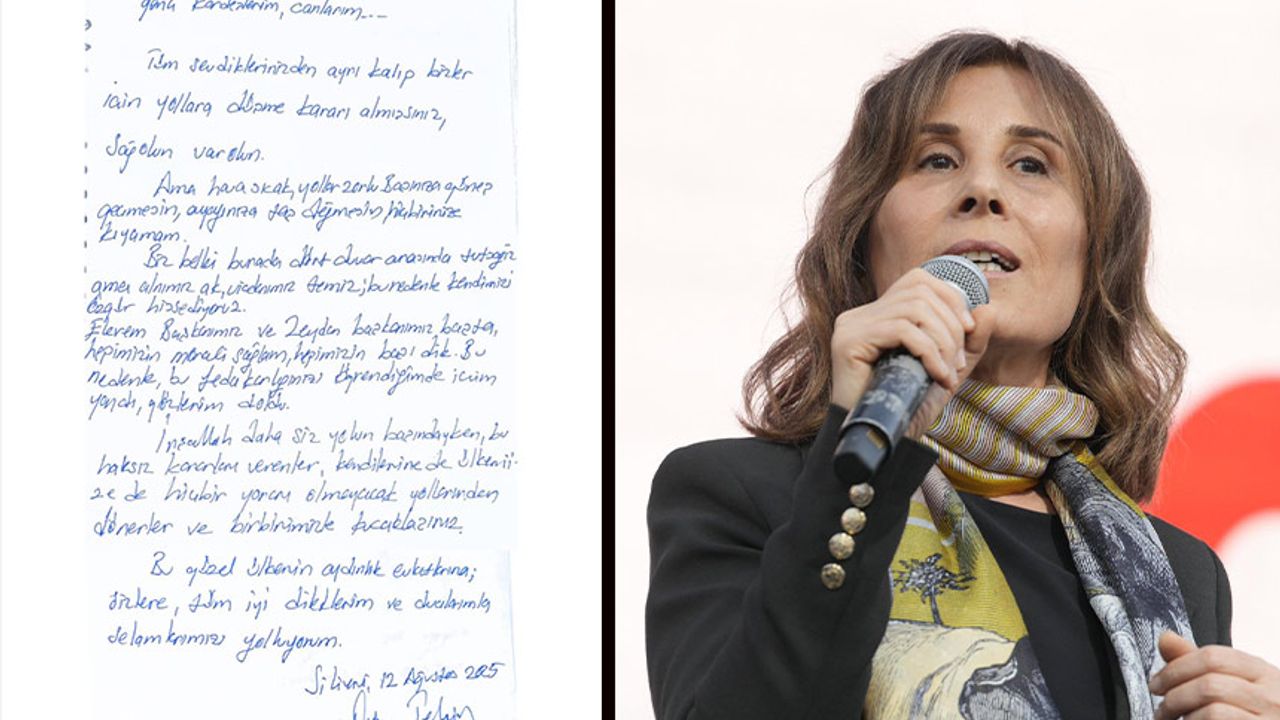 gönül kardeşlerim, canlarım...
Tüm sevdiklerinizden ayrı kalıp bizler
için yollara düşme kararı almışsınız,
Sağolun varolun.
Ama hava sıcak, yollar zorlu. Başınıza güneş
geçmesin, ayağınıza taş değmesin, hiçbirinize
kıyamam.
Biz belki burada dört duvar arasında tutsağız
ama alnımız ak, vicdanımız temiz; bu nedenle kendimizi
özgür hissediyoruz.
Ekrem Başkanımız ve Zeydan başkanımız başta,
hepimizin morali sağlam, hepimizin başı dik. Bu
nedenle, bu fedakarlığınızı öğrendiğimde içim
yandı, gözlerim doldu.
İnşallah daha siz yolun başındayken, bu
haksız kararları verenler, kendilerine de ülkemi-
ze de hiçbir yararı olmayacak yollarından
dönerler ve birbirimizle kucaklaşırız.
Bu güzel ülkenin aydınlık evlatlarına;
sizlere, tüm iyi dileklerim ve dualarımla
selamlarımızı yolluyorum.
Silivri, 12 Ağustos 2025